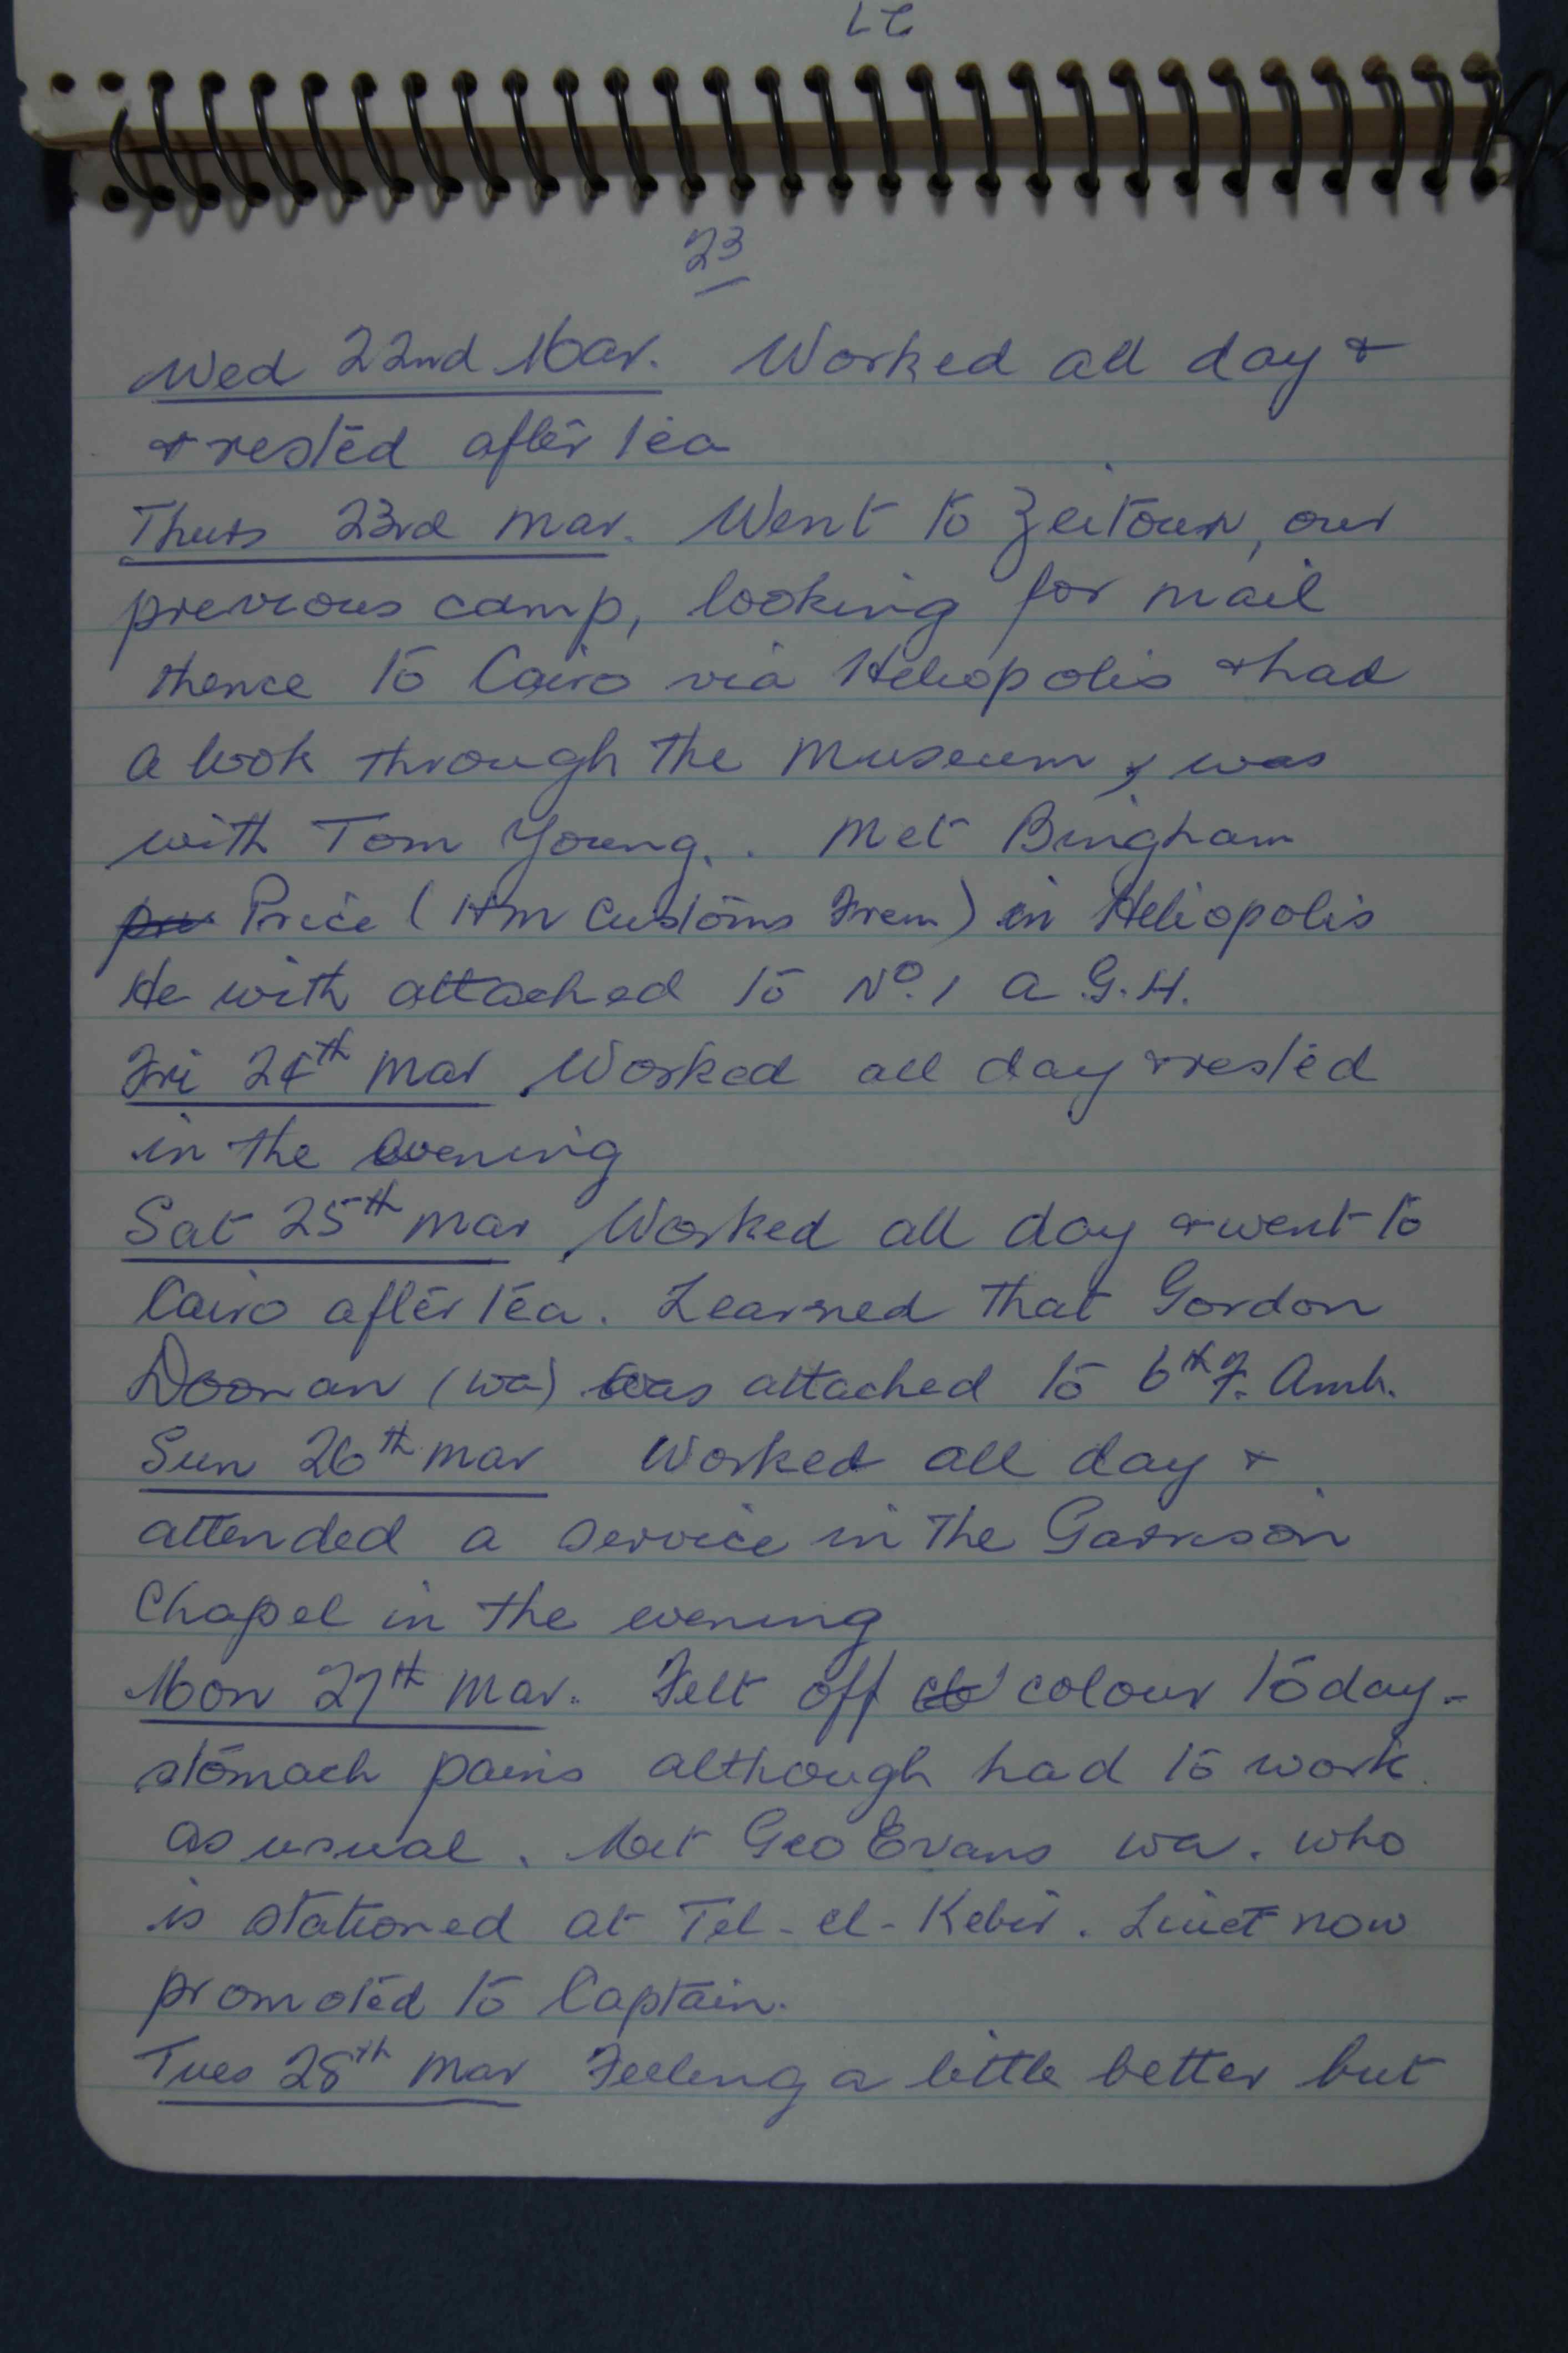 23
Wed 22nd Mar. Worked all day &
& rested after tea
Thurs 23rd Mar. Went to Zeitoun, our
previous camp, looking for mail
thence to Cairo via Heliopolis & had
a look through the Museum, was
with Tom Young. . Met Bingham
Price (HM Customs Frem) in Heliopolis
He with attached to No. 1 A G.H.
Fri 24th Mar Worked all day & rested
in the evening
Sat 25th Mar Worked all day & went to
Cairo after tea. Learned that Gordon
Doonan (WA) was attached to 6th F. Amb.
Sun 26th Mar Worked all day &
attended a service in the Garrison
Chapel in the evening
Mon 27th Mar. Felt off colour today -
stomach pains although had to work
as usual. Met Geo Evans WA. who
is stationed at Tel-el-Kebir. Lieut now
promoted to Captain.
Tues 28th Mar Feeling a little better but